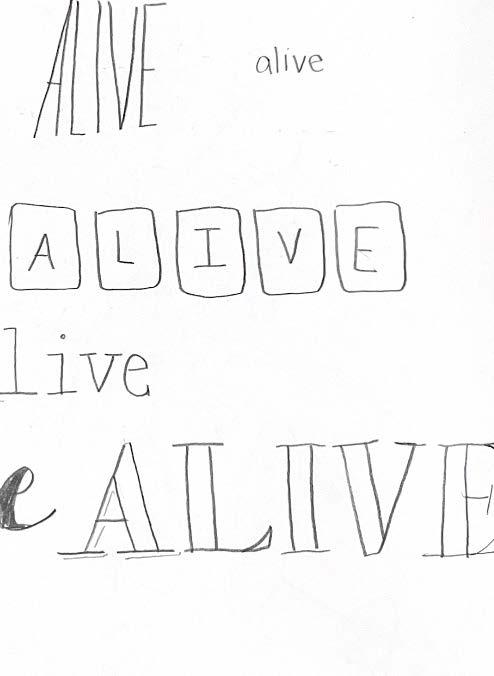 ALIVE
alive
ALIVE
live
e ALIVE